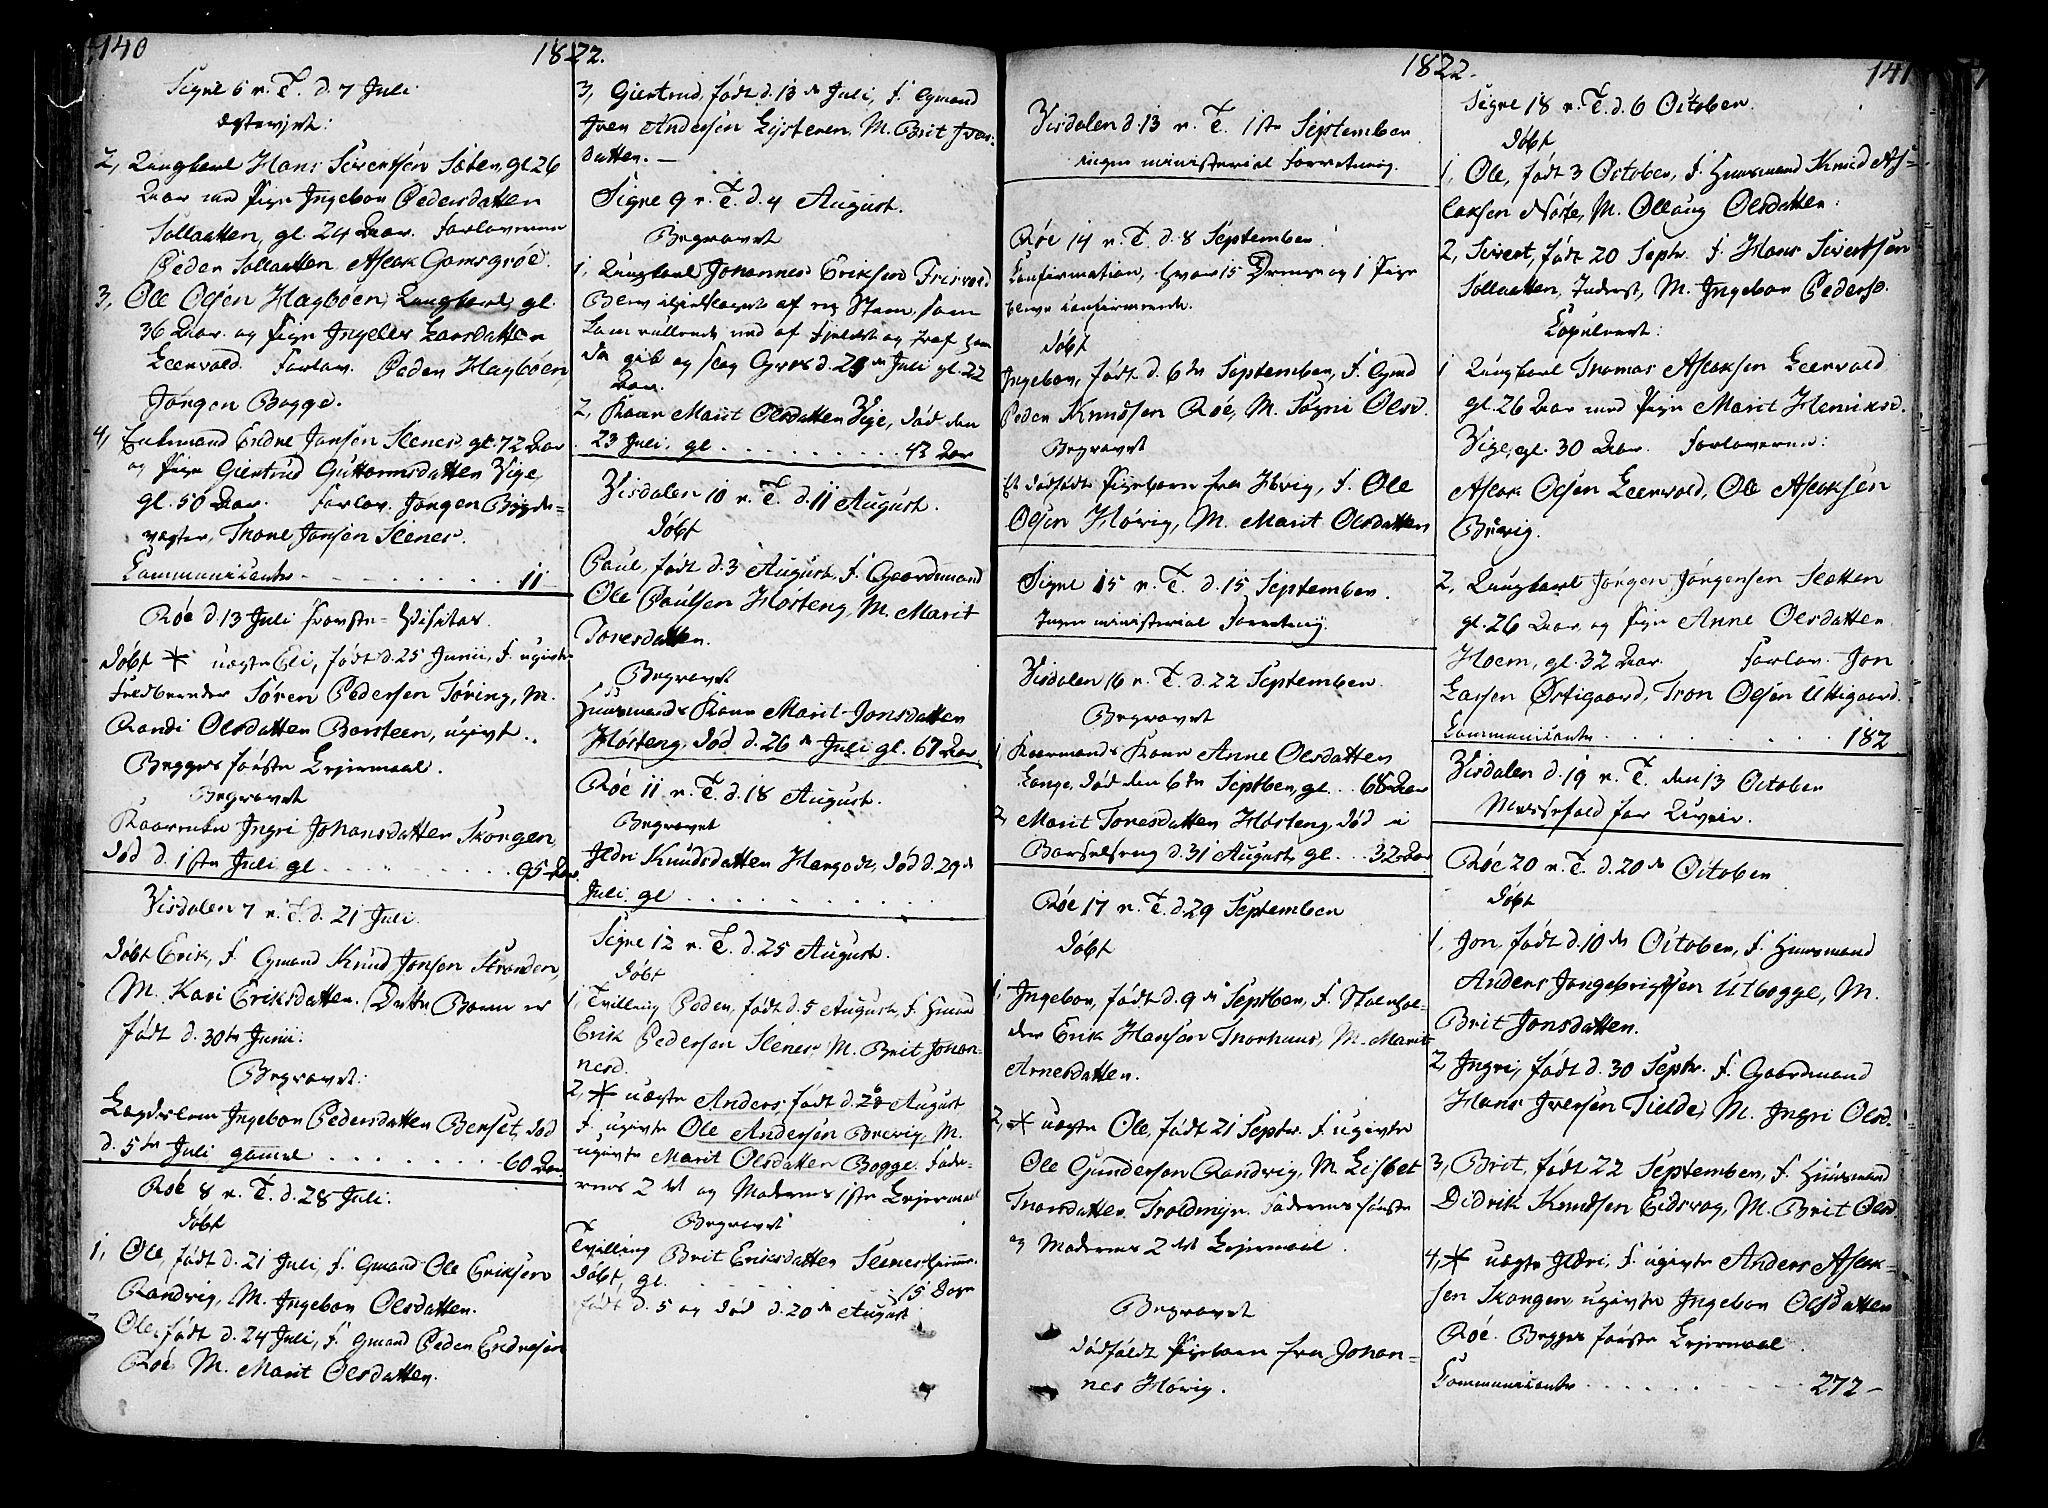 140
1822.
Signe 6 p. T. d. 7 Juli.
2, Ungkarl Hans Sivertsen Solen, gl. 26
Aar med Pige Ingebor Pedersdatter
Sollaatten, gl. 24 Aar. Forlovere
Peder Sollaatten, Aslak Gamsgrøe.
3, Ole Olsen Hagbøen, Ungkarl, gl.
36 Aar og Pige Ingeller Larsdatter
Leervold. Forlov. Peder Hagbøen,
Jørgen Bogge.
4, Enkemand Endre Jonsen Slenes, gl. 72 Aar
og Pige Giertrud Guttormsdatter Vige,
gl. 50 Aar. Forlov. Jørgen Bøyde=
vogter, Trone Jonsen Slenes.
Communicantr . . . 11
Røe d. 13 Juli Provste-Visitas.
Døbt * uægte Eli, født d. 25 Junii, F. ugivte
Feldbereder Sören Pedersen Töring, M.
Randi Olsdatter Barsteen, ugivt.
Begges første Lejermaal.
Begravet
Kaarenke Ingri Johansdatter Skorgen,
død d. 1ste Juli gl . . . 95 Aar.
Visdalen 7 p. T. d. 21 Juli.
Døbt Erik, F. Gmand Knud Jonsen Stranden,
M. Kari Eriksdatter. (Dette Barn er
født d. 30te Junii.
Begravet:
Lægdslem Ingebor Pedersdatter Berset, død
d. 5te Juli gamel . . . 60 Aar
Røe 8 p. T. d. 28 Juli.
Døbt
1, Ole, født d. 21 Juli, F. Gmand Ole Eriksen
Randvig, M. Ingebor Olsdatter.
2, Ole, født d. 24 Juli, F. Gmand Peder Endresen
Røe, M. Marit Olsdatter.
3, Giertrud, født d. 13de Juli, F. Gmand
Iver Andersen Lysteren, M. Brit Ivers
datter. —
Signe 9 p. T. d. 4 August.
Begravet
1, Ungkarl Johannes Eriksen Frisvold
Blev ihjelslaget af en Steen, som
kom rullende ned af Fjeldet og traf ham
da gik og slog Græs d. 25de Juli gl. 22
Aar.
2, Kone Marit Olsdatter Vige, død den
23 Juli, gl . . . 43 Aar
Visdalen 10 p. T. d. 11 August.
Døbt
Paul, født d. 3 August, F. Gaardmand
Ole Paulsen Hørsteng, M. Marit
Toresdatter.
Begravet
Huusmands Kone Marit Jonsdatter
Hørsteng, død d. 26de Juli gl. 67 Aar
Røe 11 p. T. d. 18 August.
Begravet
Ildri Knudsdatter Hargodt, død d. 29de
Juli gl . . .
Signe 12 p. T. d. 25 August.
Døbt
1, Tvilling Peder, født d. 5 August, F. Hmand
Erik Pedersen Slenes, M. Brit Johan=
nesd.
2, * uægte Anders, født d. 20 August
F. ugivte Ole Andersen Brevig, M.
ugivte Marit Olsdatter Bogge. Fade=
rens 2det og Moderens 1ste Lejermaal
Begravet
Tvilling Brit Eriksdatter Slenes hjemme
døbt, gl. . . . 15 Dage
født d. 5 og død d. 20de August
1822.
141
Visdalen d. 13 p. T. 1ste September
ingen ministerial Forretning.
Røe 14 p. T. d. 8 September.
Confirmation, hvor 15 Drenge og 1 Pige
bleve confirmerede.
Døbt
Ingebor, født d. 6te September, F. Gmd
Peder Knudsen Røe, M. Sögni Olsd.
Begravet
Et dødfødt Pigebarn fra Hövig, F. Ole
Olsen Hövig, M. Marit Olsdatter
Signe 15 p. T. d. 15 September.
Ingen ministerial Forretning.
Visdalen 16 p. T. d. 22 September.
Begravet
1 Kaarmands Kone Anne Olsdatter
Lange, død den 6te Septber, gl. . . 68 Aar
2, Marit Toresdatter Hørsteng, død i
Barselseng d. 31 August, gl. . . 32 Aar
Røe 17 p. T. d. 29 September
Døbt
1, Ingebor, født d. 9de Septber, F. Skolehol=
der Erik Hansen Thorhuus, M. Marit
Arnesdatter.
2, * uægte Ole, født 21 Septr. F. ugivte
Ole Gundersen Randvig, M. Lisbet
Thorsdatter Troldmyr. Faderens første
og Moderens 2det Lejermaal.
Begravet
Dødfødt Pigebarn fra Johan=
nes Hövig.
Signe 18 p. T. d. 6 October.
Døbt
1, Ole, født 3 October, F. Huusmand Knud As=
laksen Nöste, M. Ollaug Olsdatter.
2, Sivert, født 20 Septr. F. Hans Sivertsen
Sollaatten, Inderst, M. Ingebor Pedersd.
Copuleret:
1 Ungkarl Thomas Aslaksen Leervold
gl. 26 Aar med Pige Marit Henriksd.
Vige, gl. 30 Aar. Forloverne:
Aslak Olsen Leervold, Ole Aslaksen
Brevig.
2, Ungkarl Jörgen Jörgensen Slotten
gl. 26 Aar og Pige Anne Olsdatter
Hoem, gl. 32 Aar. Forlov. Jon
Larsen Østigaard, Tron Olsen Uttigaard.
Communicantr . . . 182
Visdalen d. 19 p. T. den 13 October
Messefald for Uveir.
Røe 20 p. T. d. 20de October
Døbt
1, Jon, født d. 10de October, F. Huusmand
Anders Ingebrigtsen Utbogge, M.
Brit Jonsdatter.
2, Ingri, født d. 30 Septr. F. Gaardmand
Hans Iversen Tielde, M. Ingri Olsd.
3, Brit, født 22 September, F. Huusmand
Didrik Knudsen Eidsvog, M. Brit Olsd.
4, * uægte Ildri, F. ugivte Anders Aslak=
sen Skorgen, ugivte Ingebor Olsdatter
Røe. Begges første Lejermaal.
Communicantr . . . 272 –